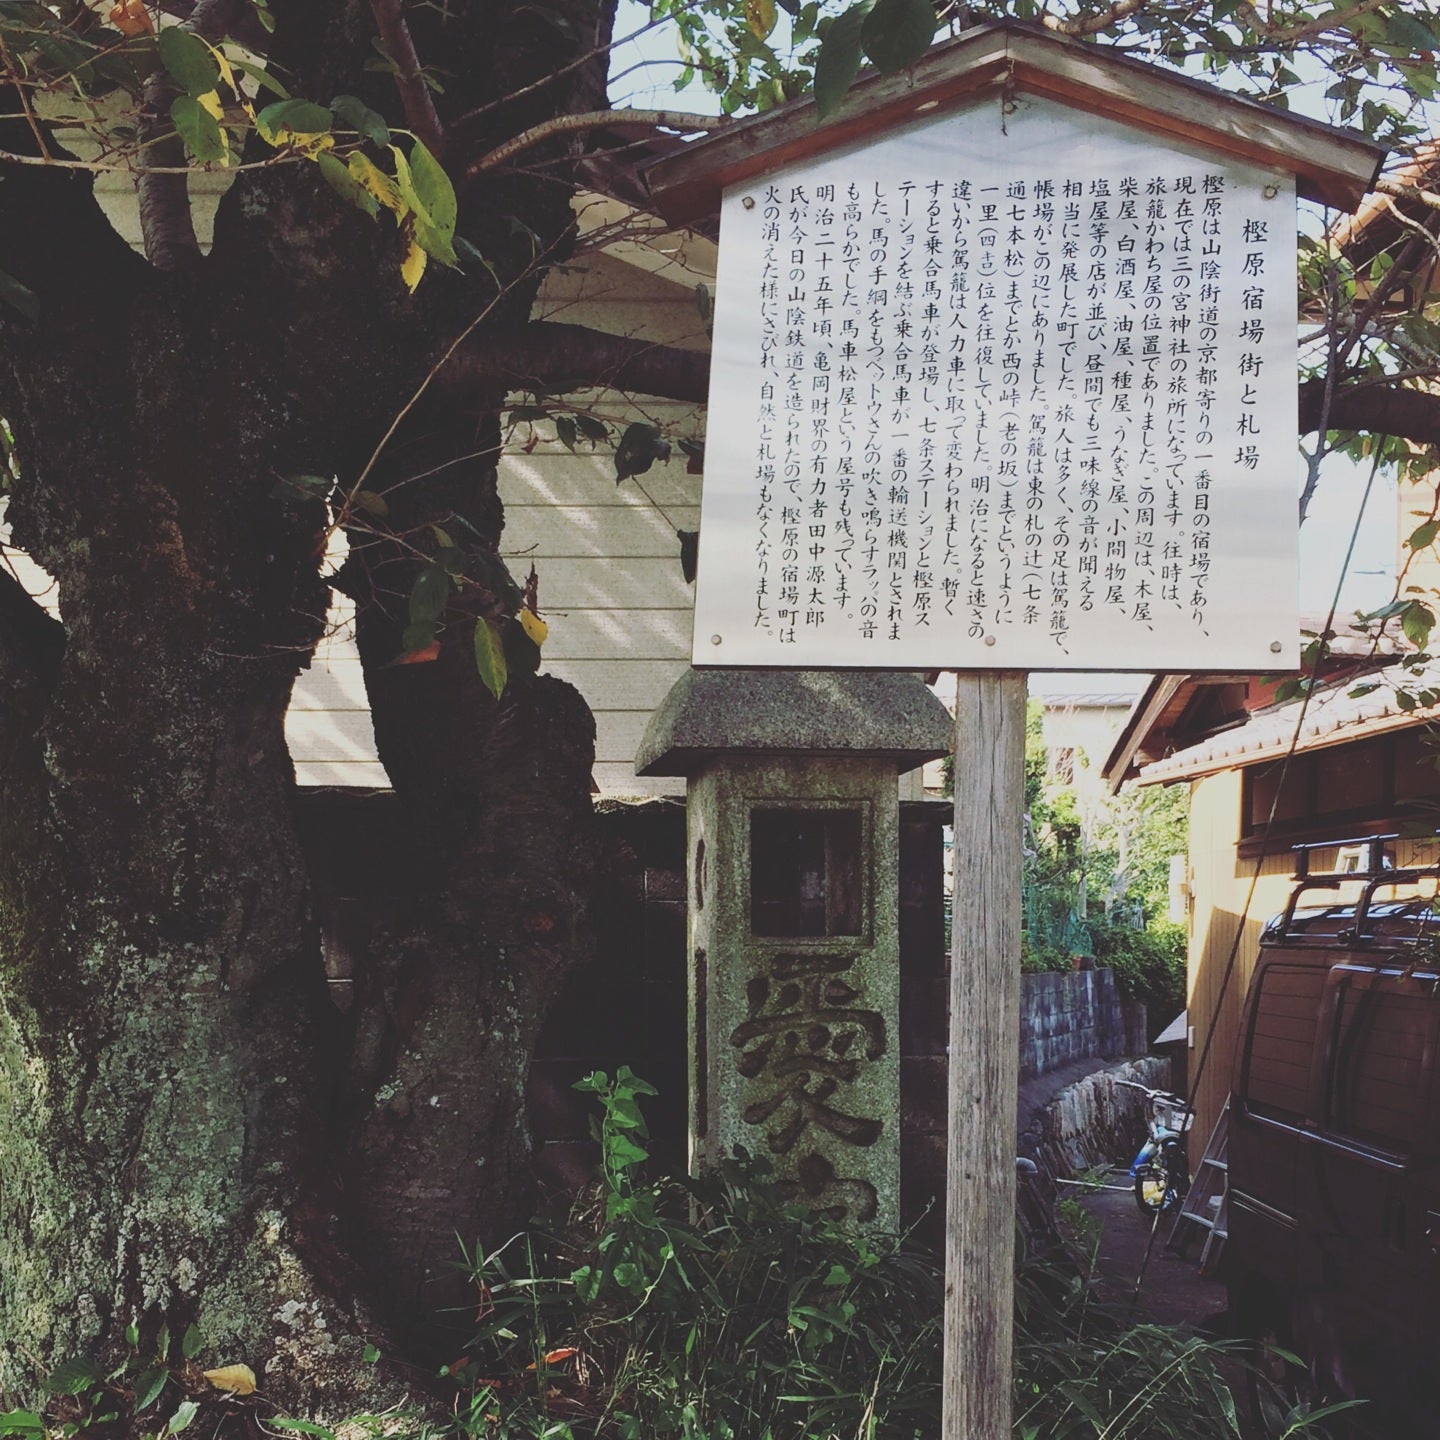 樫原宿場街と札場
樫原は山陰街道の京都寄りの一番目の宿場であり、
現在では三の宮神社の旅所になっています。往時は、
旅籠かわち屋の位置でありました。この周辺は、木屋、
柴屋、白酒屋、油屋、種屋、うなぎ屋、小間物屋、
塩屋等の店が並び、昼間でも三味線の音が聞える
相当に発展した町でした。旅人は多く、その足は駕籠で、
帳場がこの辺にありました。駕籠は東の札の辻(七条
通七本松)までとか西の峠(老の坂)までというように
一里(四キロ)位を往復していました。明治になると速さの
違いから駕籠は人力車に取って変わられました。暫く
すると乗合馬車が登場し、七条ステーションと樫原ス
テーションを結ぶ乗合馬車が一番の輸送機関とされま
した。馬の手綱をもつベットウさんの吹き鳴らすラッパの音
も高らかでした。馬車松屋という屋号も残っています。
明治二十五年頃、亀岡財界の有力者田中源太郎
氏が今日の山陰鉄道を造られたので、樫原の宿場町は
火の消えた様にさびれ、自然と札場もなくなりました。
愛